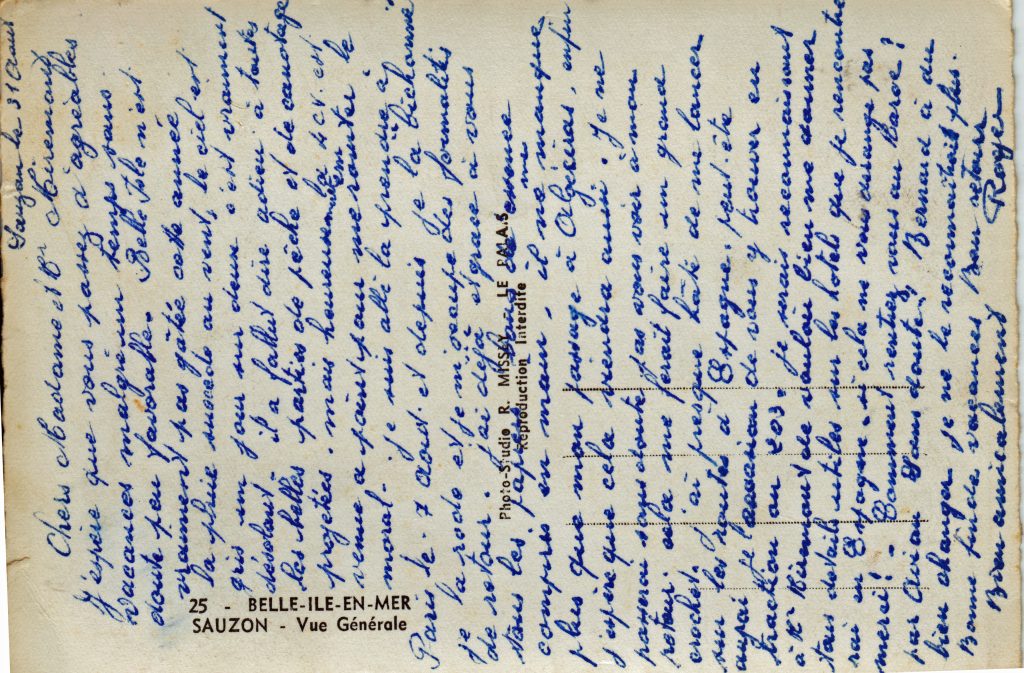 Sauzon le 31 Aout
Chers Madame et Mr Miremont
J'espère que vous passez d'agréables
vacances malgré un temps sans
doute peu favorable. Belle Isle n'est
vraiment pas gâtée cette année
la pluie succède au vent, le ciel est
gris un jour sur deux c'est vraiment
désolant il a fallut dire adieu à toutes
les belles parties de pêche et de canotage
projetées. mais heureusement la 4 cv. est
venue a point pour me remonter le
moral. je suis allé la prendre à
Paris le 7 aout et depuis je la bichonne
je la rode et je m'occupe des formalités
de retour. j'ai déjà et grace à vous
tous les papiers essence
compris en main, il ne me manque
plus que mon passage à Algésiras, enfin
j'espère que cela viendra aussi. Je ne
passerai sans doute pas vous voir à mon
retour cela me ferait faire un grand
crochet. j'ai presque hâte de me lancer
sur les routes d'Espagne, peut être
aurai je l'occasion de vous y trouver en
traction ou 203. je serais reconnaissant
à Mr Miremont de vouloir bien me donner
tous détails utiles sur les hotels que je rencontre
rai en Espagne si cela ne vous dérange pas
merci! - Comment rentrez vous au Maroc?
par Avion sans doute! Bernard à du
bien changer je ne le reconnaitrait plus.
Bonne fin de vacances Bon retour
Bien amicalement Roger
25 - BELLE-ILE-EN-MER
SAUZON - Vue Générale
Photo-Studio R. MISSAY LE PALAIS
Reproduction Interdite